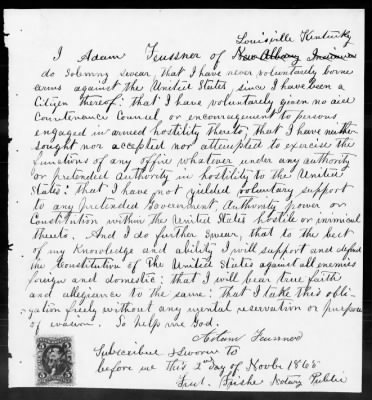 Louisville Kentucky
I Adam Feussner of New Albany Indiana
do Solemny swear, that I have never voluntarily borne
arms against the United States, since I have been a
Citizen thereof; that I have voluntarily given no aid
Countenance Counsel or encouragement to persons
engaged in armed hostility thereto; that I have neither
sought nor accepted nor attempted to exercise the
functions of any office whatever under any authority
or pretended authority in hostility to the United
States; that I have not yielded voluntary support
to any pretended Government, Authority, power or
Constitution within the United States hostile or inimical
thereto. And I do further swear, that to the best
of my knowledge and ability I will support and defend
the Constitution of the United States against all enemies
foreign and domestic; that I will bear true faith
and allegiance to the same; that I take this obli-
gation freely without any mental reservation or purpose
of evasion. So help me God.
Adam Feussner
Subscribed & sworn to
before me this 2nd day of Novbr 1865
Notary Public